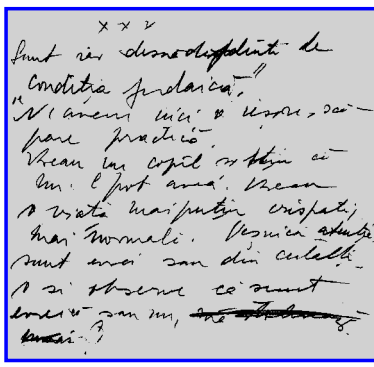 x x x
Sunt iar deznădăjduită de
condiția judaică."
"N-avem nici o ieșire, scă-
pare practică.
Vreau un copil și știu că
nu-l pot avea. Vreau
o viață mai puțin crispată,
mai normală. Veșnica atenție
sunt evrei sau din ceilalți.
o să observe că sunt
evreică sau nu,